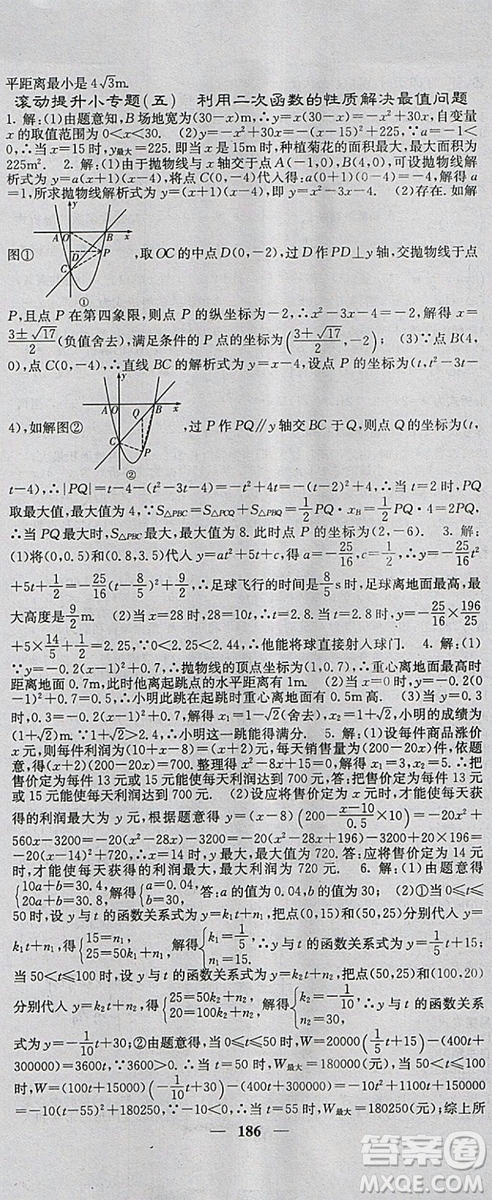 平距离最小是 4√3m.
滚动提升小专题(五) 利用二次函数的性质解决最值问题
1. 解:(1)由题意知,B 场地宽为(30-x)m,∴y=x(30-x)=-x²+30x,自变
量 x 的取值范围为 0<x<30. (2)y=-x²+30x=-(x-15)²+225,
∴当 x=15 时,y最大=225. 即当 x=15m 时,种植菊花的面积最大,最大面积为
225m². 2. 解:(1)由于抛物线与 x 轴交于点 A(-1,0),B(4,0),可设抛物线解
析式为 y=a(x+1)(x-4),将点 C(0,-4)代入得 a(0+1)(0-4)=-4,解得 a
=1,所求抛物线解析式为 y=(x+1)(x-4),即 y=x²-3x-4. (2)存在. 如解
图① ,取 OC 的中点 D(0,-2),过 D 作 PD⊥y 轴,交抛物线于点
A O B x y D P C
①
P,且点 P 在第四象限,则点 P 的纵坐标为-2,∴x²-3x-4=-2,解得 x=
(3±√17)/2(负值舍去),满足条件的 P 点的坐标为((3+√17)/2,-2); (3)∵点 B(4,
0),点 C(0,-4),∴直线 BC 的解析式为 y=x-4,设点 P 的坐标为(t,t²-3t-
4),如解图② ,过 P 作 PQ∥y 轴交 BC 于点 Q,则点 Q 的坐标为(t,
A O Q B x y C P
②
t-4),∴|PQ|=t-4-(t²-3t-4)=-t²+4t=-(t-2)²+4,∴当 t=2 时,PQ
取最大值,最大值为 4,∵S△PBC=S△PCQ+S△PBQ=1/2PQ·xB=1/2PQ·4=2PQ,
∴当 PQ 最大时,S△PBC最大,最大值为 8. 此时点 P 的坐标为(2,-6). 3. 解:
(1)将(0,0.5)和(0.8,3.5)代入 y=at²+5t+c 得 a=-25/16,c=1/2,∴y=-25/16t²
+5t+1/2=-25/16(t-8/5)²+9/2,∴足球飞行的时间是 8/5s 时,足球离地面最高,最
大高度是 9/2m. (2)当 x=28 时,28=10t,∴t=2.8,当 t=2.8 时,y=-25/16×196/25
+5×14/5+1/2=2.25,∵0<2.25<2.44,∴他能将球直接射入球门. 4. 解:(1)
∵y=-0.2(x-1)²+0.7,∴抛物线的顶点坐标为(1,0.7),∴重心离地面最高时
距离地面 0.7m,此时他离起跳点的水平距离有 1m. (2)当 x=0 时,y=-0.2(0
-1)²+0.7=0.5(m),∴小明此跳在起跳时重心离地面有 0.5m 高. (3)当 y=
0.3 时,0.3=-0.2(x-1)²+0.7,解得 x=1+√2或 x=1-√2(舍去),小明的成绩为
(1+√2)m,∵1+√2>2.4,∴小明这一跳能得满分. 5. 解:(1)设每件商品涨价
x 元,则每天每件的利润为(10+x-8)=(2+x)元,每天销售量为(200-20x)件,依题意,
得(2+x)(200-20x)=700. 整理得 x²-8x+15=0,解得 x₁=3,x₂=5,∴把
售价定为每件 13 元或 15 元能使每天利润达到 700 元. 答:把售价定为每件 13 元
或 15 元能使每天利润达到 700 元. (2)设应将售价定为 x 元时,才能使得每天获
得的利润最大为 y 元,根据题意得 y=(x-8)(200-(x-10)/0.5×10)=-20x²+
560x-3200=-20(x²-28x)-3200=-20(x²-28x+14²)-3200+20×196=
-20(x-14)²+720,∴x=14 时,利润最大,y最大=720. 答:应将售价定为 14 元
时,才能使每天获得的利润最大,最大利润为 720 元. 6. 解:(1)由题意得
{10a+b=30.4, 20a+b=30.8, 解得{a=0.04, b=30. 答:a 的值为 0.04,b 的值为 30; (2)①当 0≤t≤
50 时,设 y 与 t 的函数关系式为 y=k₁t+n₁,把点(0,15)和(50,25)分别代入 y=
k₁t+n₁,得{15=n₁, 25=50k₁+n₁, 解得{k₁=1/5, n₁=15. ∴y 与 t 的函数关系式为 y=1/5t+15;
当 50<t≤100 时,设 y 与 t 的函数关系式为 y=k₂t+n₂,把点(50,25)和(100,20)
分别代入 y=k₂t+n₂,得{25=50k₂+n₂, 20=100k₂+n₂, 解得{k₂=-1/10, n₂=30, ∴y 与 t 的函数关系式
为 y=-1/10t+30;②由题意得,当 0≤t≤50 时,W=20000(1/5t+15)-(400t+
300000)=3600t,∵3600>0,∴当 t=50 时,W最大=180000(元),当 50<t≤100
时,W=(100t+15000)(-1/10t+30)-(400t+300000)=-10t²+1100t+150000
=-10(t-55)²+180250,∵-10<0,∴当 t=55 时,W最大=180250(元);综上所
186
答案圈
MXQE.COM